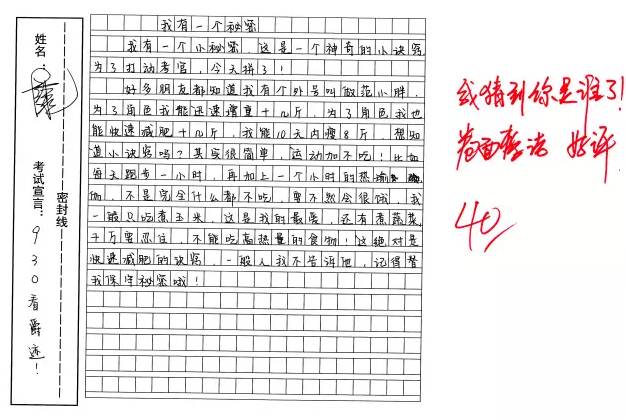 姓名：
考试宣言：930看爵迹！
密封线
我有一个秘密
我有一个小秘密，这是一个神奇的小诀窍，
为了打动考官，今天拼了！
好多朋友都知道我有个外号叫做范小胖，
为了角色我能迅速增重十几斤，为了角色我也
能快速减肥十几斤，我能10天内瘦8斤，想知
道小诀窍吗？其实很简单，运动加不吃！比如
每天跑步一小时，再加上一个小时的热瑜
伽，不是完全什么都不吃，要不然会很饿，我
一般只吃煮玉米，这是我的最爱，还有煮蔬菜，
千万要忍住，不能吃高热量的食物！这绝对是
快速减肥的诀窍，一般人我不告诉他，记得替
我保守秘密哦！
我猜到你是谁了！
卷面整洁 好评
40